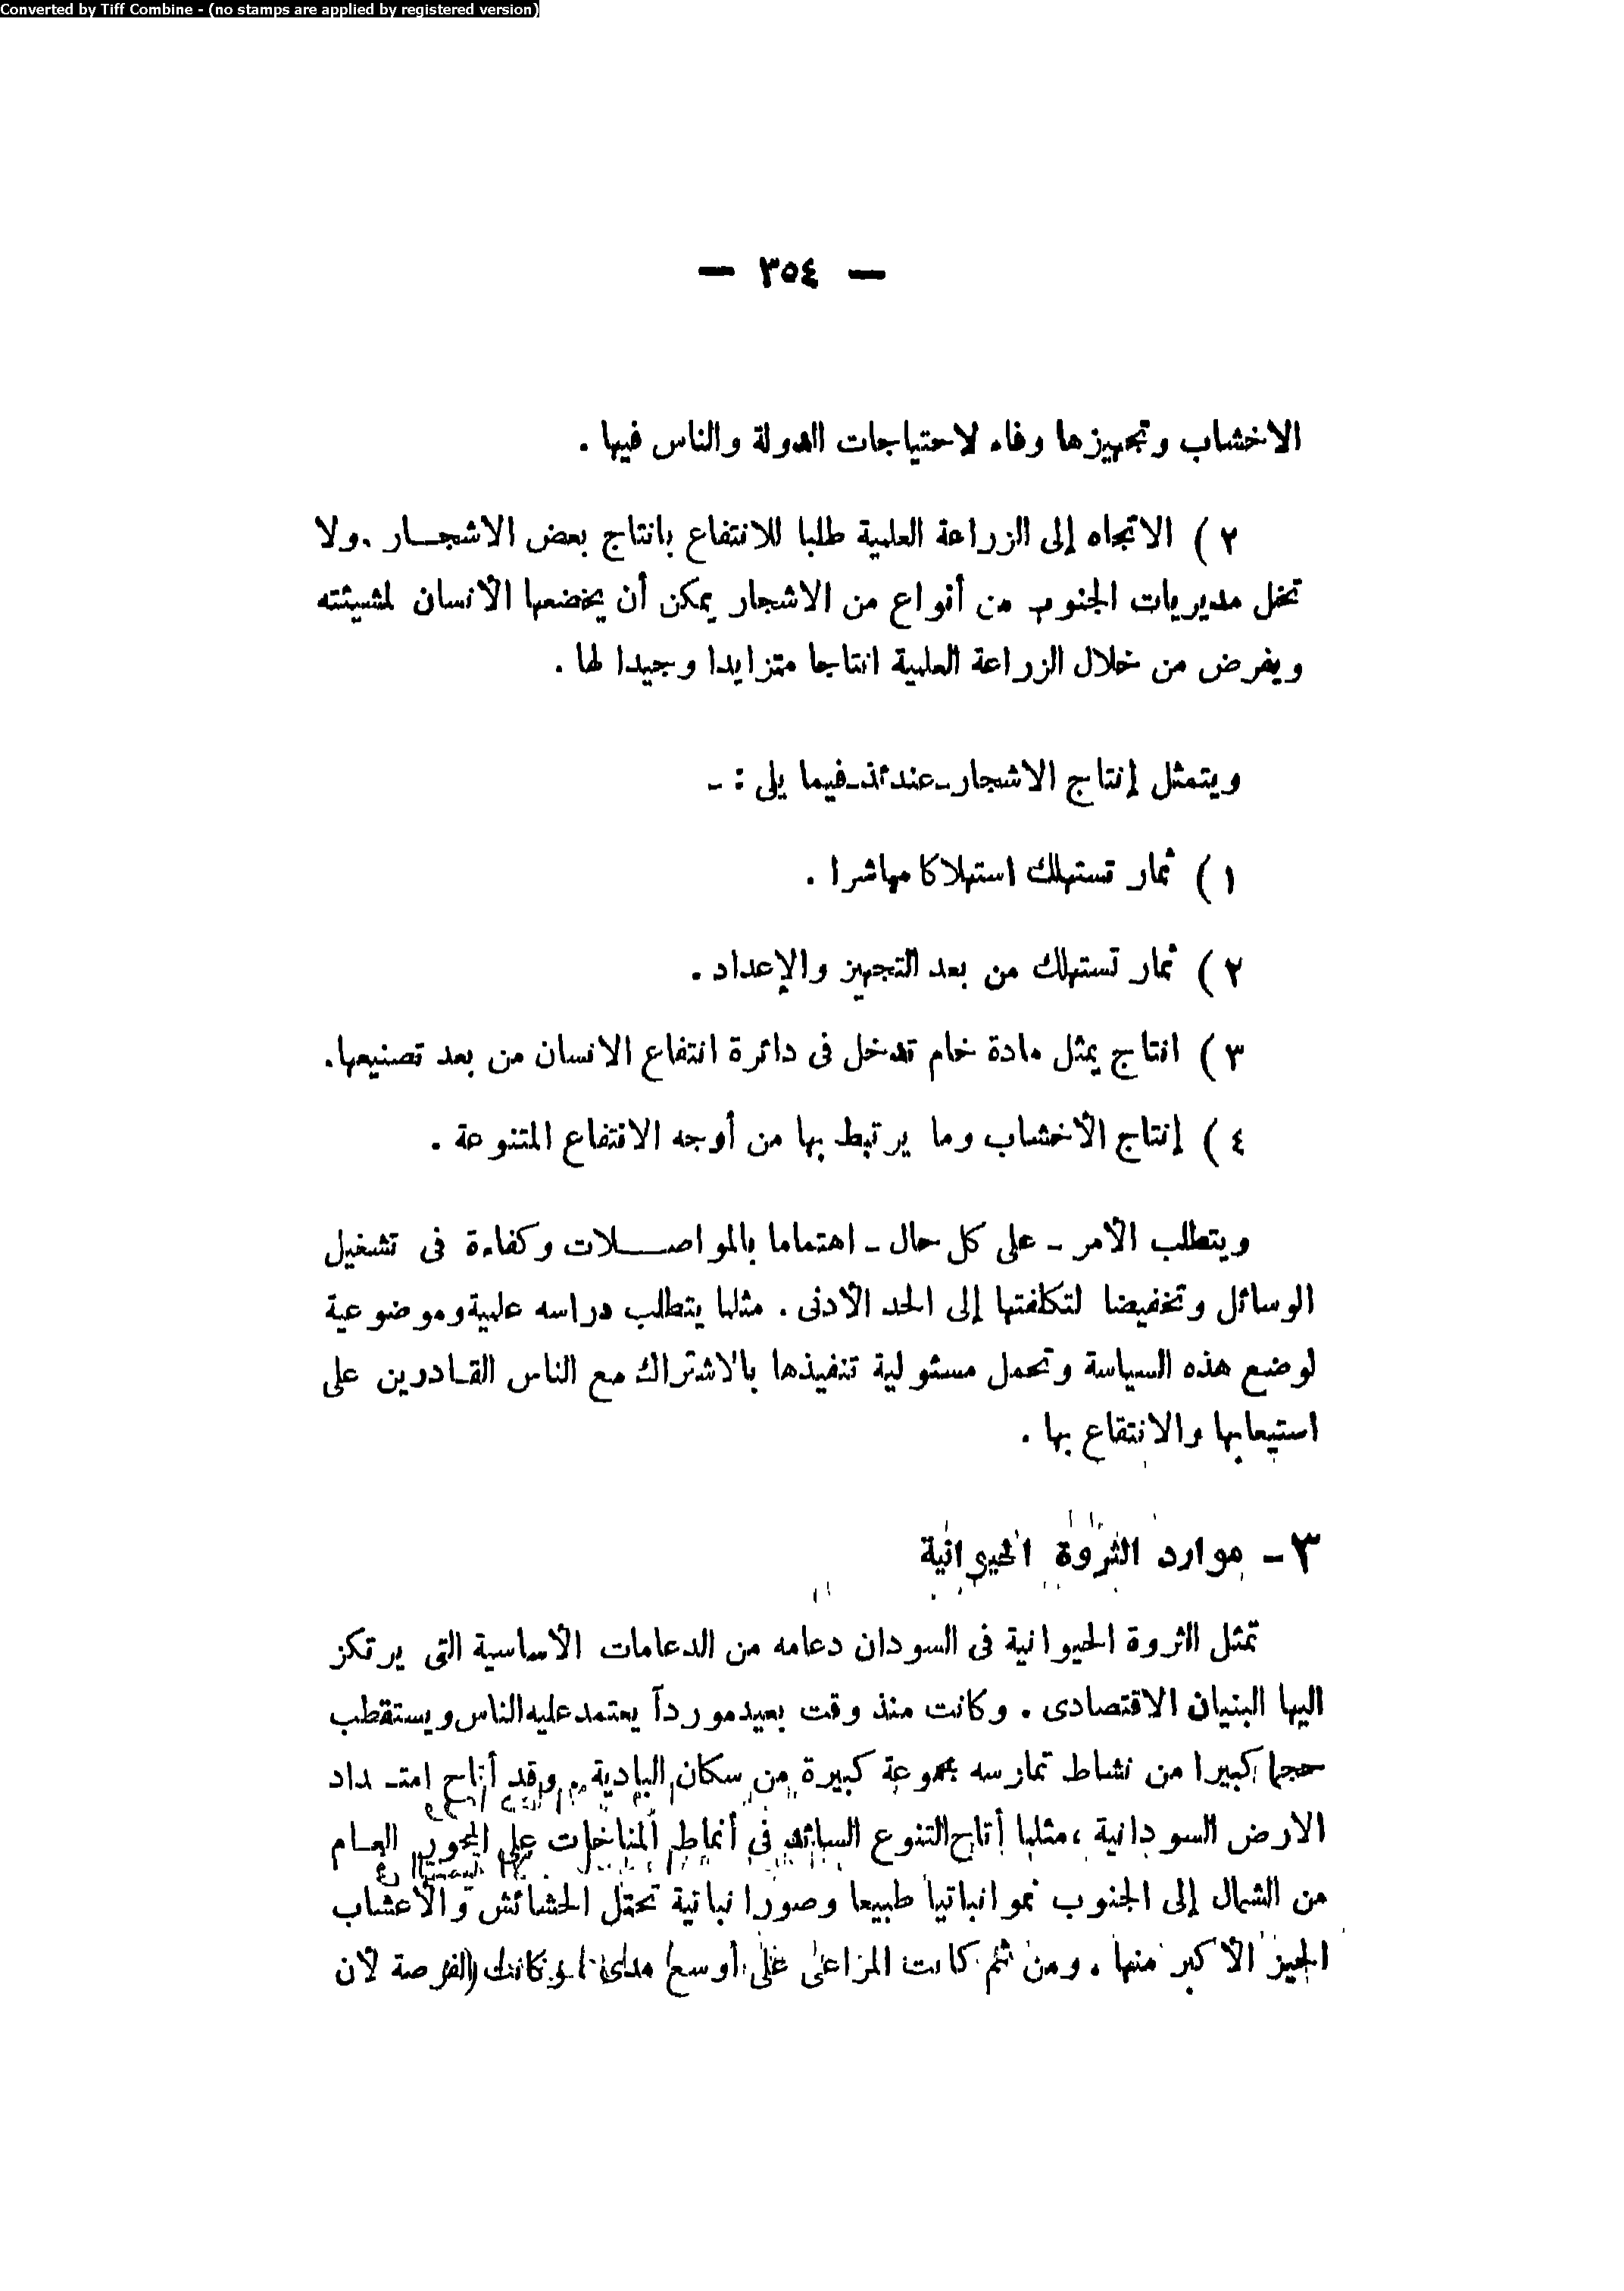 Converted by Tiff Combine - (no stamps are applied by registered version)
— ٣٥٤ —
الاخشاب وتجهيزها وفاء لاحتياجات الدولة والناس فيها .
٢ ) الاتجاه إلى الزراعة العلمية طلبا للانتفاع بانتاج بعض الاشجـــار . ولا
تخل مديريات الجنوب من أنواع من الاشجار يمكن أن يخضعها الأنسان لمشيئته
ويفرض من خلال الزراعة العلمية انتاجا متزايدا وجيدا لها .
ويتمثل إنتاج الاشجار ـ عندئذ ـ فيما يلى : ـ
١ ) ثمار تستهلك استهلاكا مباشرا .
٢ ) ثمار تستهلك من بعد التجهيز والإعداد .
٣ ) انتاج يمثل مادة خام تدخل فى دائرة انتفاع الانسان من بعد تصنيعها.
٤ ) إنتاج الأخشاب وما يرتبط بها من أوجه الانتفاع المتنوعة .
ويتطلب الأمر ـ على كل حال ـ اهتماما بالمواصـــلات وكفاءة فى تشغيل
الوسائل وتخفيضا لتكلفتها إلى الحد الأدنى . مثلما يتطلب دراسه علمية وموضوعية
لوضع هذه السياسة وتحمل مسئولية تنفيذها بالاشتراك مع الناس القـادرين على
استيعابها والانتفاع بها .
٣ ـ موارد الثروة الحيوانية
تمثل الثروة الحيوانية فى السودان دعامه من الدعامات الأساسية التى يرتكز
اليها البنيان الاقتصادى . وكانت منذ وقت بعيد موردآ يعتمد عليه الناس ويستقطب
حجما كبيرا من نشاط تمارسه مجموعة كبيرة من سكان البادية . وقد أتاح امتـداد
الارض السودانية ، مثلما أتاح التنوع السائد فى أنماط المناخات على المحور العـام
من الشمال إلى الجنوب نموا نباتيا طبيعا وصورا نباتية تحتل الحشائش والأعشاب
الحيز الأكبر منها . ومن ثم كانت المراعى على أوسع مدى وكانت الفرصة لأن